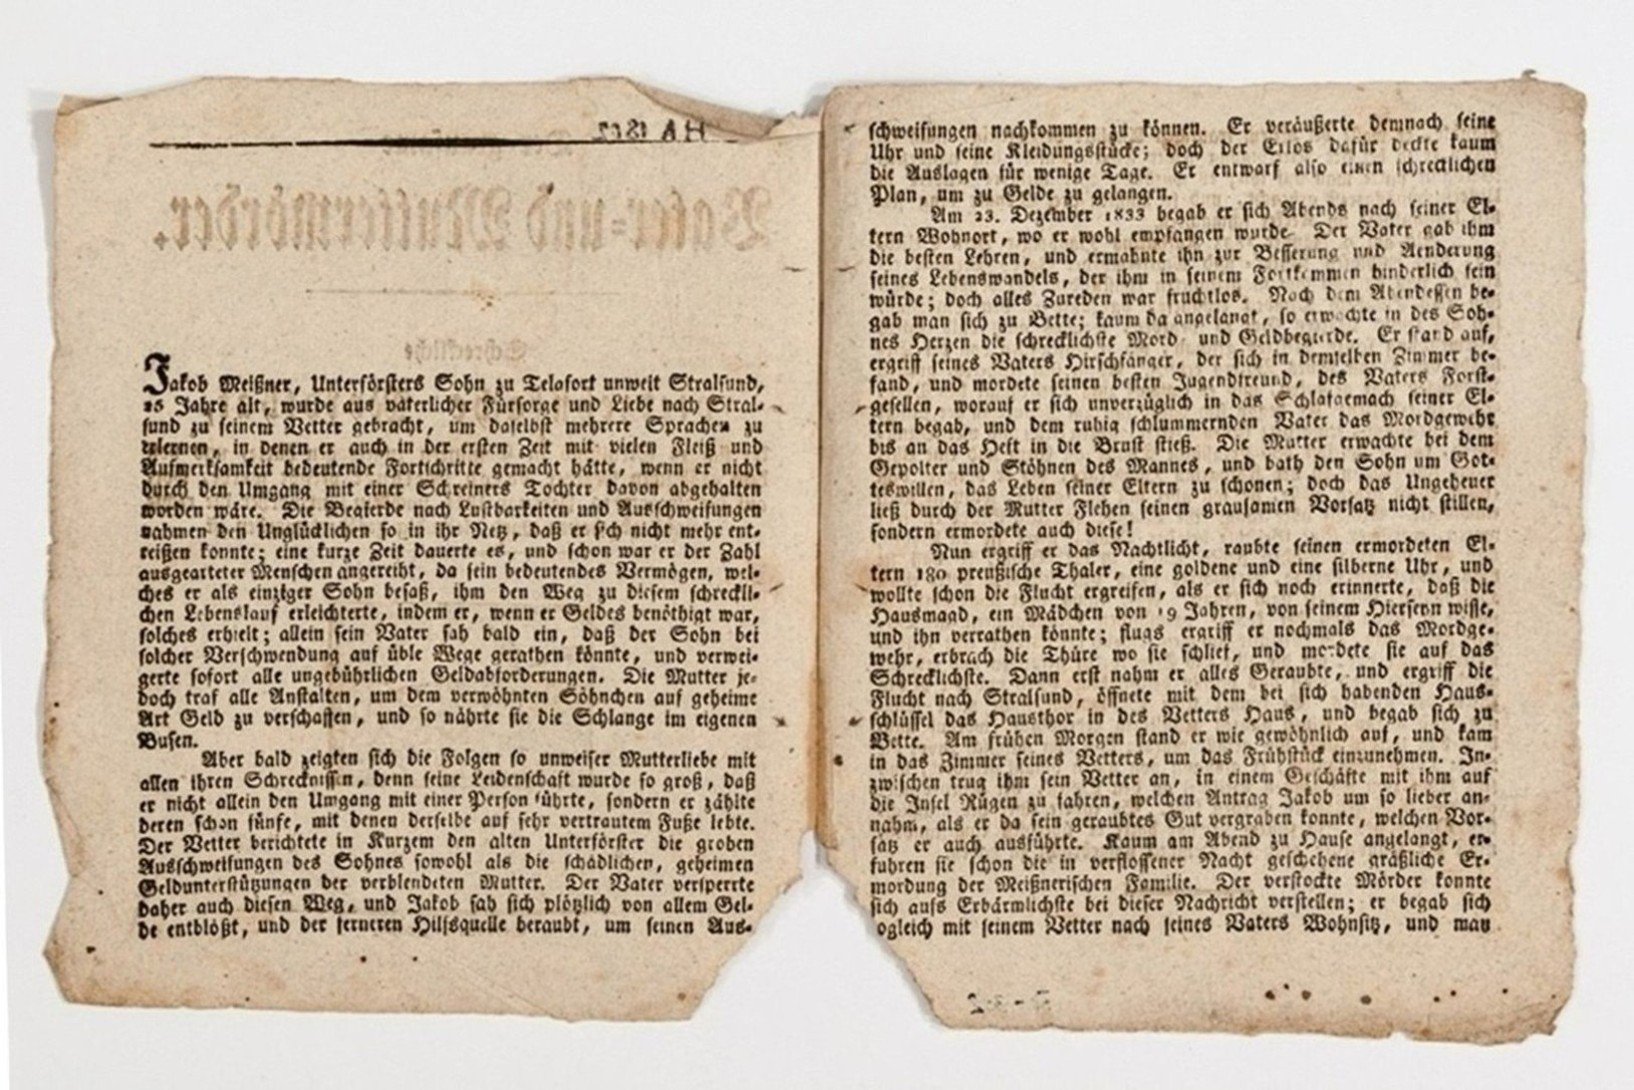 Jakob Meißner, Unterförsters Sohn zu Telafort unweit Stralsund,
25 Jahre alt, wurde aus väterlicher Fürsorge und Liebe nach Stral-
sund zu seinem Vetter gebracht, um daselbst mehrere Sprachen zu
erlernen, in denen er auch in der ersten Zeit mit vielen Fleiß und
Aufmerksamkeit bedeutende Fortschritte gemacht hätte, wenn er nicht
durch den Umgang mit einer Schreiners Tochter davon abgehalten
worden wäre. Die Begierde nach Lustbarkeiten und Ausschweifungen
nahmen den Unglücklichen so in ihr Netz, daß er sich nicht mehr ent-
reißen konnte; eine kurze Zeit dauerte es, und schon war er der Zahl
ausgearteter Menschen angereiht, da sein bedeutendes Vermögen, wel-
ches er als einziger Sohn besaß, ihm den Weg zu diesem schreckli-
chen Lebenslauf erleichterte, indem er, wenn er Geldes benöthigt war,
solches erhielt; allein sein Vater sah bald ein, daß der Sohn bei
solcher Verschwendung auf üble Wege gerathen könnte, und verwei-
gerte sofort alle ungebührlichen Geldabforderungen. Die Mutter je-
doch traf alle Anstalten, um dem verwöhnten Söhnchen auf geheime
Art Geld zu verschaffen, und so nährte sie die Schlange im eigenen
Busen.
Aber bald zeigten sich die Folgen so unweiser Mutterliebe mit
allen ihren Schrecknissen, denn seine Leidenschaft wurde so groß, daß
er nicht allein den Umgang mit einer Person führte, sondern er zählte
deren schon fünfe, mit denen derselbe auf sehr vertrautem Fuße lebte.
Der Vetter berichtete in Kurzem den alten Unterförster die groben
Ausschweifungen des Sohnes sowohl als die schädlichen, geheimen
Geldunterstützungen der verblendeten Mutter. Der Vater versperrte
daher auch diesen Weg, und Jakob sah sich plötzlich von allem Gel-
de entblößt, und der ferneren Hilfsquelle beraubt, um seinen Aus-
schweifungen nachkommen zu können. Er veräußerte demnach seine
Uhr und seine Kleidungsstücke; doch der Erlös dafür deckte kaum
die Auslagen für wenige Tage. Er entwarf also einen schrecklichen
Plan, um zu Gelde zu gelangen.
Am 23. Dezember 1833 begab er sich Abends nach seiner El-
tern Wohnort, wo er wohl empfangen wurde. Der Vater gab ihm
die besten Lehren, und ermahnte ihn zur Besserung und Aenderung
seines Lebenswandels, der ihm in seinem Fortkommen hinderlich sein
würde; doch alles Zureden war fruchtlos. Nach dem Abendessen be-
gab man sich zu Bette; kaum da angelangt, so erwachte in des Soh-
nes Herzen die schrecklichste Mord- und Geldbegierde. Er stand auf,
ergriff seines Vaters Hirschfänger, der sich in demselben Zimmer be-
fand, und mordete seinen besten Jugendfreund, des Vaters Forst-
gesellen, worauf er sich unverzüglich in das Schlafgemach seiner El-
tern begab, und dem ruhig schlummernden Vater das Mordgewehr
bis an das Heft in die Brust stieß. Die Mutter erwachte bei dem
Gepolter und Stöhnen des Mannes, und bath den Sohn um Got-
teswillen, das Leben seiner Eltern zu schonen; doch das Ungeheuer
ließ durch der Mutter Flehen seinen grausamen Vorsatz nicht stillen,
sondern ermordete auch diese!
Nun ergriff er das Nachtlicht, raubte seinen ermordeten El-
tern 180 preußische Thaler, eine goldene und eine silberne Uhr, und
wollte schon die Flucht ergreifen, als er sich noch erinnerte, daß die
Hausmagd, ein Mädchen von 19 Jahren, von seinem Hierseyn wisse,
und ihn verrathen könnte; flugs ergriff er nochmals das Mordge-
wehr, erbrach die Thüre wo sie schlief, und mordete sie auf das
Schrecklichste. Dann erst nahm er alles Geraubte, und ergriff die
Flucht nach Stralsund, öffnete mit dem bei sich habenden Haus-
schlüssel das Hausthor in des Vetters Haus, und begab sich zu
Bette. Am frühen Morgen stand er wie gewöhnlich auf, und kam
in das Zimmer seines Vetters, um das Frühstück einzunehmen. In-
zwischen trug ihm sein Vetter an, in einem Geschäfte mit ihm auf
die Insel Rügen zu fahren, welchen Antrag Jakob um so lieber an-
nahm, als er da sein geraubtes Gut vergraben konnte, welchen Vor-
satz er auch ausführte. Kaum am Abend zu Hause angelangt, er-
fuhren sie schon die in verflossener Nacht geschehene gräßliche Er-
mordung der Meißnerischen Familie. Der verstockte Mörder konnte
sich aufs Erbärmlichste bei dieser Nachricht verstellen; er begab sich
ogleich mit seinem Vetter nach seines Vaters Wohnsitz, und man